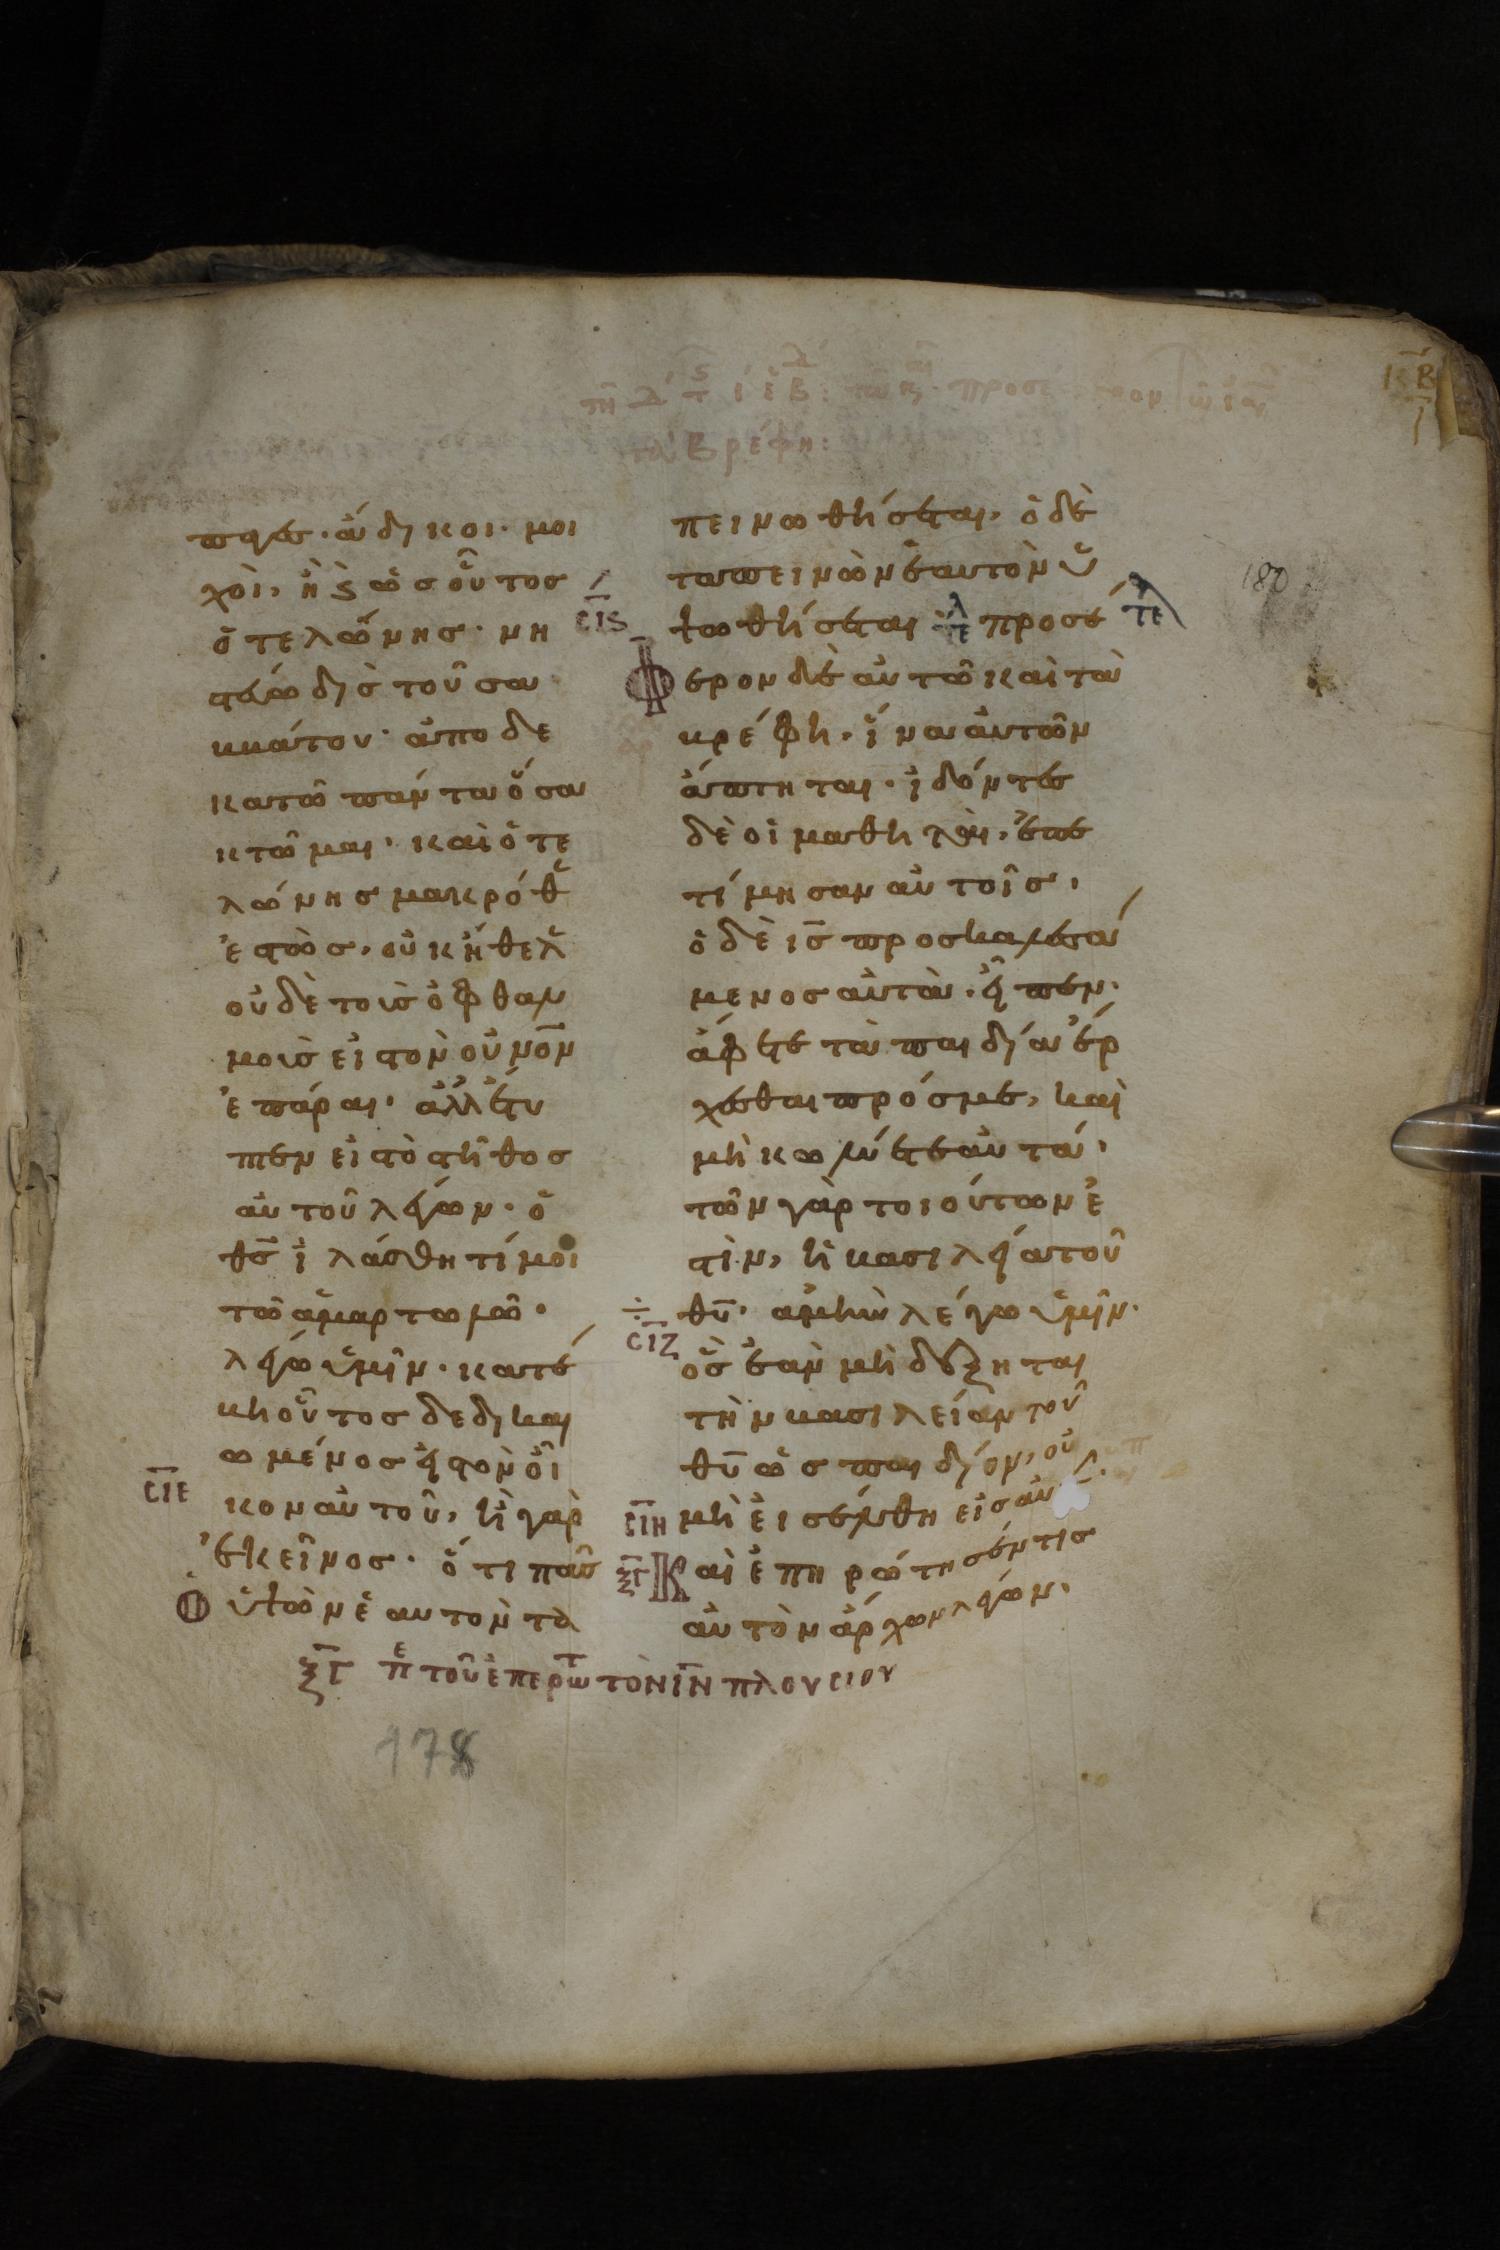 ΚΒ
τῆ Δ τ ι ε Β: προσέ
τὰ βρέφη:
παγεσ· ἄδικοι· μοι
χοὶ, ἢ ϛ ὡσ οὗτοσ
ὁ τελώνησ· νη
στεύω δὶσ τοῦ σα
ββάτου· ἀποδε
κατῶ πάντα ὅσα
κτῶμαι· καὶ ὁ τε
λώνησ μακρόθ
ἑστὼσ, οὐκ ἤθελ
οὐδὲ τοὺσ ὀφθαλ
μοὺσ εἰσ τὸν οὐνον
ἐπάραι· ἀλλ' ἔτυ
πτεν εἰσ τὸ στῆθοσ
αὐτοῦ λέγων· ὁ
θσ ἱλάσθητί μοι
τῶ ἁμαρτωλῶ·
λέγω ὑμῖν· κατέ
βη οὗτοσ δεδικαι
ωμένοσ εἰσ τὸν οἶ
ϹΙΕ
κον αὐτοῦ, ἢ γὰρ
ἐκεῖνοσ· ὅτι πᾶσ
Ὁ ὑψῶν ἑαυτὸν τα
πεινωθήσεται, ὁ δὲ
ταπεινῶν ἑαυτὸν ὑ
ϹΙϚ
ψωθήσεται τε προσέ τε
Φ ερον δὲ αὐτῶ καὶ τὰ
βρέφη, ἵνα αὐτῶν
ἅπτηται· ἰδόντεσ
δὲ οἱ μαθηταὶ, ἐπε
τίμησαν αὐτοῖσ,
ὁ δὲ ισ προσκαλεσά
μενοσ αὐτὰ, εἶπεν·
ἄφετε τὰ παιδία ἔρ
χεσθαι πρόσ με, καὶ
μὴ κωλύετε αὐτά·
τῶν γὰρ τοιούτων ἐ
στὶν, ἡ βασιλεία τοῦ
θυ· ἀμὴν λέγω ὑμῖν·
ϹΙΖ
ὃσ ἐὰν μὴ δέξηται
τὴν βασιλείαν τοῦ
θυ ὡσ παιδίον, οὐ
ϹΙΗ μὴ εἰσέλθη εἰσ αὐτ
ξΓ Καὶ ἐπηρώτησέν τισ
αὐτὸν ἄρχων λέγων·
ξΓ πε τοῦ ἐπερωτ τὸν ιν πλουσιου
180
178